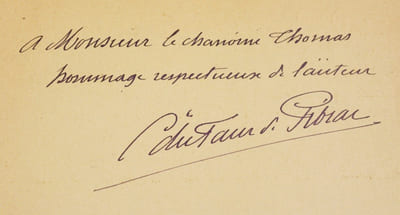 A Monsieur le chanoine Thomas
hommage respectueux de l'auteur
Cte du Faur de Pibrac